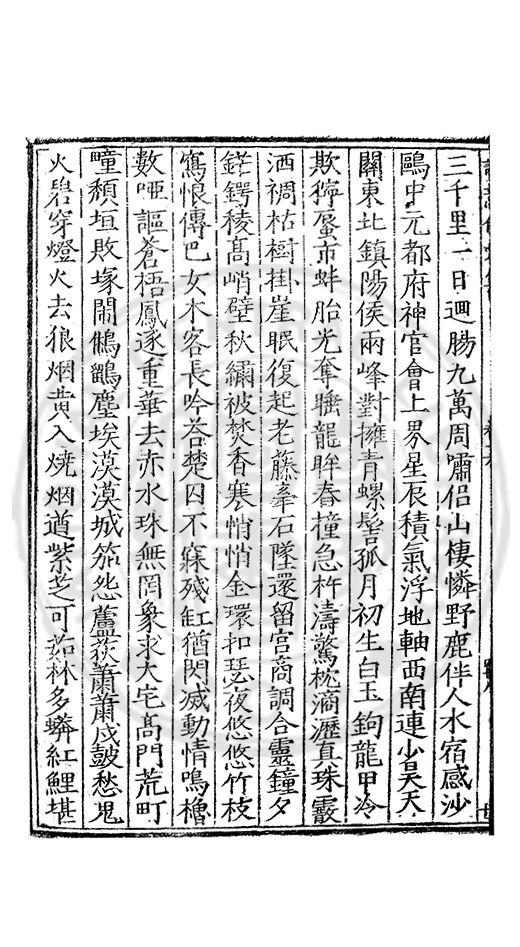 三千里一日迴腸九萬周嘯侶山棲憐野鹿伴人水宿感沙
鷗中元都府神官會上界星辰積氣浮地軸西南連少昊天
關東北鎮陽侯兩峰對擁青螺髻孤月初生白玉鉤龍甲冷
欺獰蜃市蚌胎光奪曉龍眸春撞急杵濤驚枕滴瀝真珠霰
洒裯枯樹掛崖眠復起老藤牽石墜還留宮商調合靈鐘夕
鋩鍔稜高峭壁秋繡被焚香寒悄悄金環扣瑟夜悠悠竹枝
寫恨傳巴女木客長吟答楚囚不寐殘缸猶閃滅動情鳴櫓
數啞謳蒼梧鳳逐重華去赤水珠無罔象求大宅高門荒町
疃頹垣敗塚閙鵂鶹塵埃漠漠城笳怨蘆荻蕭蕭戍鼓愁鬼
火碧穿燈火去狼烟黄入燒烟遒紫芝可茹林多蠎紅鯉堪